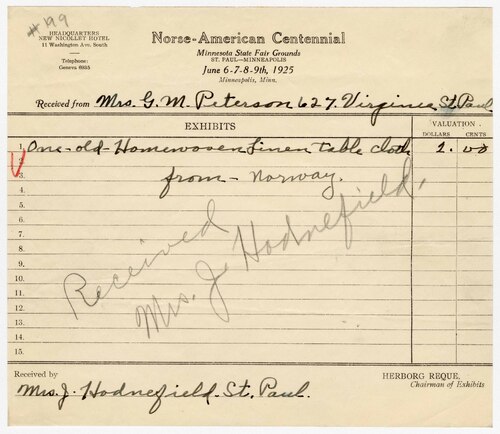 # 199
HEADQUARTERS
NEW NICOLLET HOTEL
11 Washington Ave. South
Telephone:
Geneva 6935
Norse-American Centennial
Minnesota State Fair Grounds
ST. PAUL—MINNEAPOLIS
June 6-7-8-9th, 1925
Minneapolis, Minn.
Received from Mrs. G. M. Peterson 627. Virginia St. Paul
EXHIBITS
VALUATION
DOLLARS CENTS
1. One-old-Homewoven Linen table cloth 2. 00
2.
3. from - Norway.
4.
5.
6.
7.
8.
9.
10.
11.
12.
13.
14.
15.
Received
Mrs. J. Hodnefield.
Received by
Mrs. J. Hodnefield. St. Paul.
HERBORG REQUE,
Chairman of Exhibits